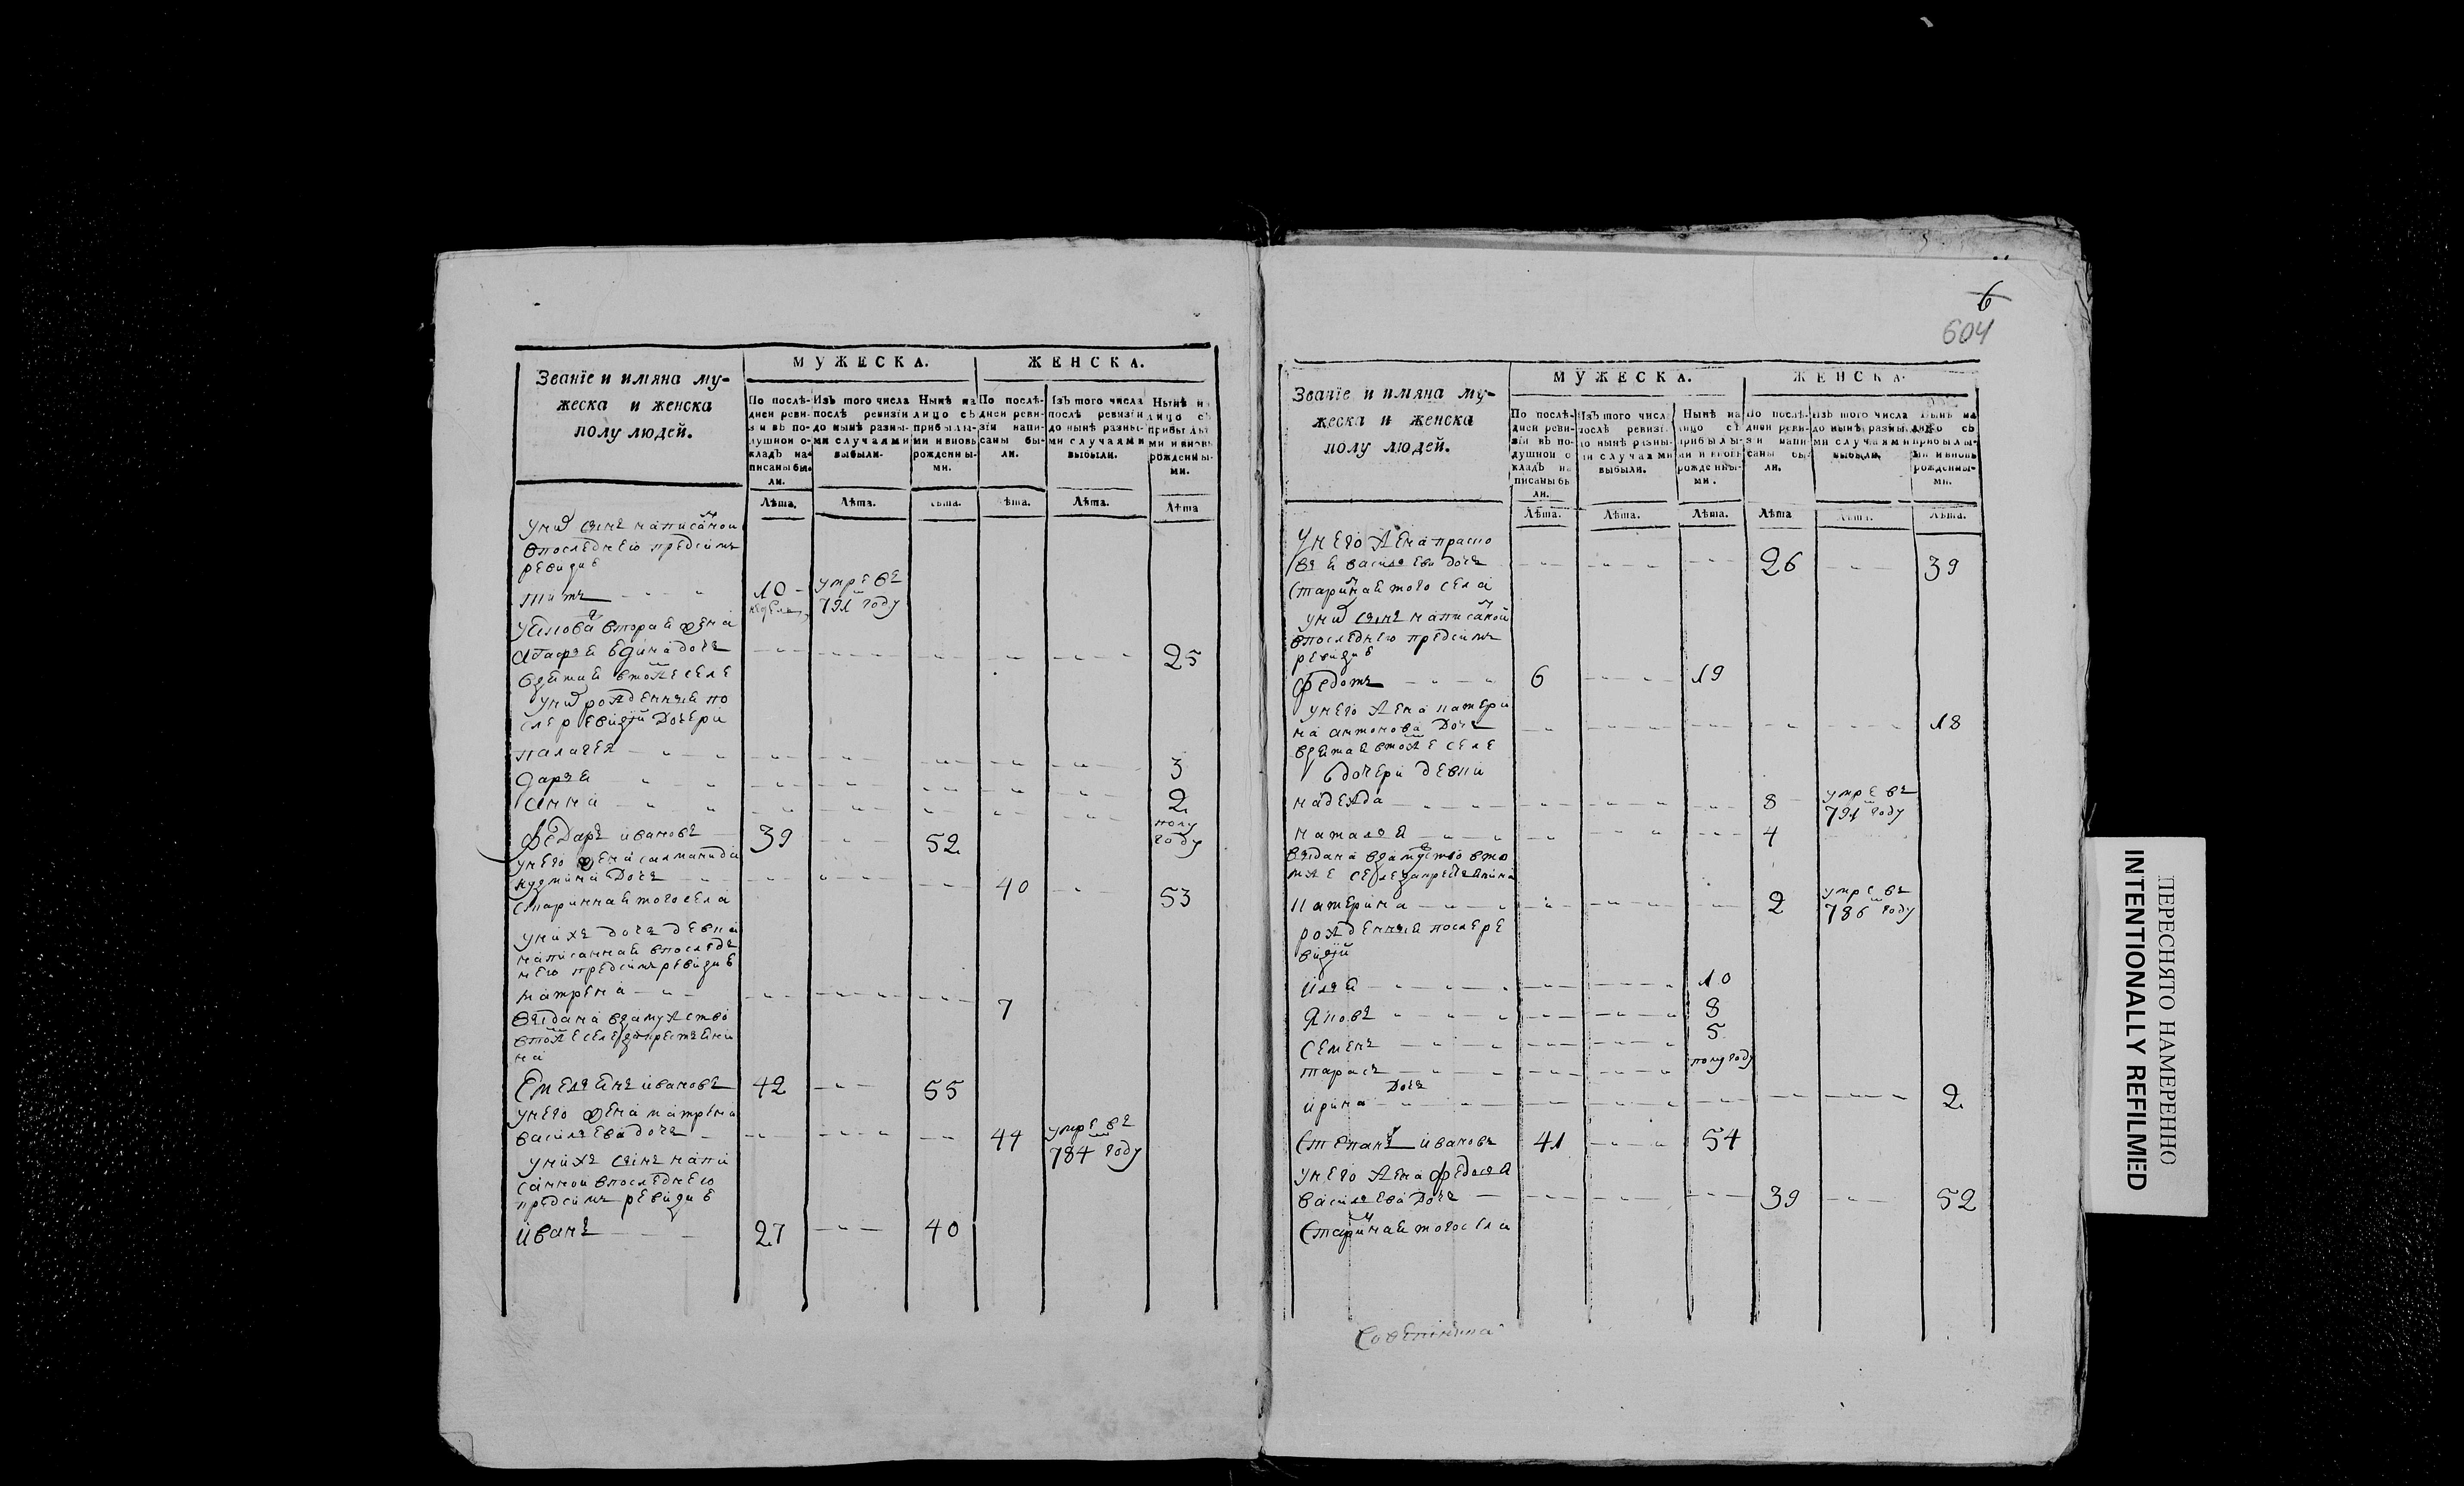 Званіе и имяна му-
жеска и женска
полу людей.
МУЖЕСКА.
ЖЕНСКА.
По послѣ-
дней реви-
зіи въ по-
душной о-
кладъ на-
писаны бы-
ли.
Изъ того числа
послѣ ревизіи
до нынѣ разны-
ми случаями
выбыли.
Нынѣ на
лицо съ
прибылы-
ми и вновь
рожденны-
ми.
По послѣ-
дней реви-
зіи напи-
саны бы-
ли.
Изъ того числа
послѣ ревизіи
до нынѣ разны-
ми случаями
выбыли.
Нынѣ на
лицо съ
прибылы-
ми и вновь
рожденны-
ми.
Лѣта. Лѣта. Лѣта. Лѣта. Лѣта. Лѣта
у них сынъ написаной
впоследнею предсимъ
ревизиѣ
титъ 10 недель умре въ 791м году
вторая жена
дочь 25
взятая втоже селе
у них рожденныя по
сле ревизiи дочери
палагея 3
дарья 2
анна полу году
Федаръ ивановъ 39 52
у него жена саламанида
кузмина дочь 40 53
старинная того села
у нихъ дочь девка
написанная впослед
нею предсимъ ревизиѣ
матрена 7
выдана взамужство
втоже селе
Емельянъ ивановъ 42 55
у него жена матрена
васильева дочь 44 умре въ 784м году
у нихъ сынъ напи
санной впоследнею
предсимъ ревизиѣ
иванъ 27 40
6
604
Званіе и имяна му-
жеска и женска
полу людей.
МУЖЕСКА.
ЖЕНСКА.
По послѣ-
дней реви-
зіи въ по-
душной о-
кладъ на-
писаны бы-
ли.
Изъ того числа
послѣ ревизіи
до нынѣ разны-
ми случаями
выбыли.
Нынѣ на
лицо съ
прибылы-
ми и вновь
рожденны-
ми.
По послѣ-
дней реви-
зіи напи-
саны бы-
ли.
Изъ того числа
до нынѣ разны-
ми случаями
выбыли.
Нынѣ на
лицо съ
прибылы-
ми и вновь
рожденны-
ми.
Лѣта. Лѣта. Лѣта. Лѣта Лѣта. Лѣта.
у него жена праско
вья васильева дочь 26 39
старинная того села
у них сынъ написаной
впоследнею предсимъ
ревизиѣ
Федотъ 6 19
у него жена катери
на антонова дочь 18
взятая втоже селе
дочери девки
надежда 8 умре въ 791м году
наталья 4
выдана взамужство вто
мже селе
катерина 2 умре въ 786м году
рожденныя после ре
визiи
илья 10
яковъ 8
семенъ 5
тарасъ полугоду
дочь
ирина 2
Степанъ ивановъ 41 54
у него жена федосья
васильева дочь 39 52
Старинная того села
ПЕРЕСНЯТО НАМЕРЕННО
INTENTIONALLY REFILMED